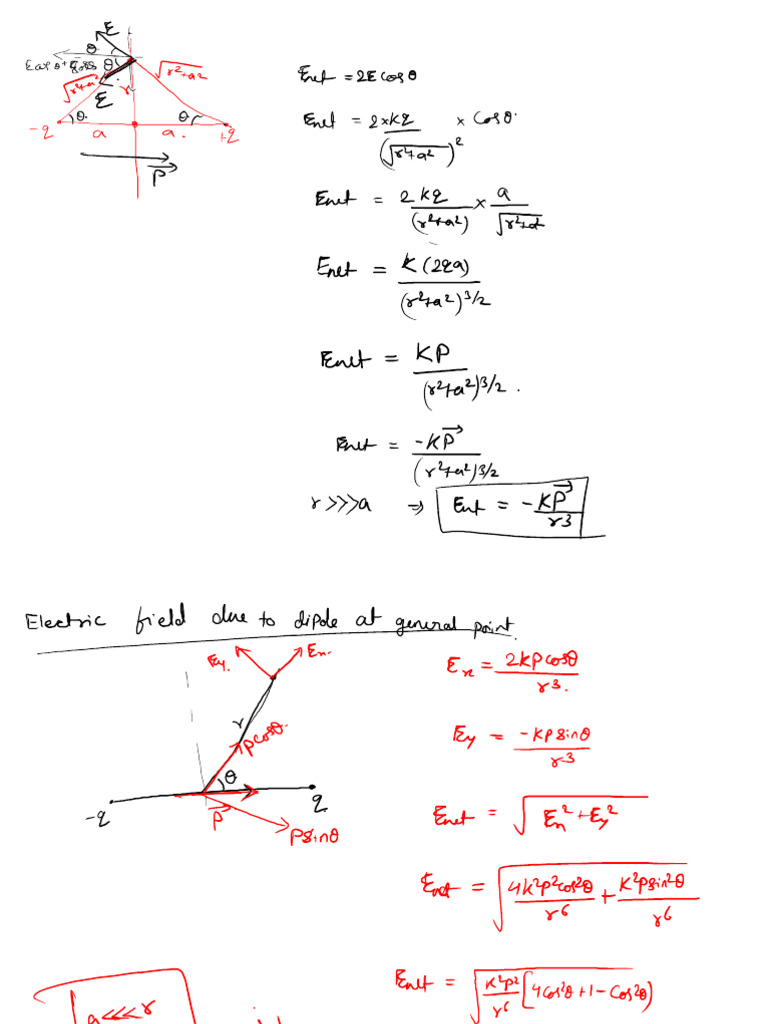 E
θ
E cos θ + E cos θ
θ
√r²+a²
√r²+a²
r
E
θ
θ
-q
a
a.
+q
P⃗
Enet = 2E cos θ
Enet = 2×kq / (√r²+a²)² × Cos θ
Enet = 2kq / (r²+a²) × a / √r²+a²
Enet = K(2qa) / (r²+a²)^3/2
Enet = KP / (r²+a²)^3/2 .
Enet = -KP⃗ / (r²+a²)^3/2
r>>>a ⇒ Enet = -KP⃗ / r³
Electric field due to dipole at general point.
Ey.
Ex.
r
Pcosθ.
θ
-q
P⃗
q
Psinθ
Ex = 2KPcosθ / r³.
Ey = -KPsinθ / r³
Enet = √Ex²+Ey²
Enet = √4K²P²cos²θ / r⁶ + K²Psin²θ / r⁶
Enet = √K²P² / r⁶ [4cos²θ+1-Cos²θ)
a<<<r